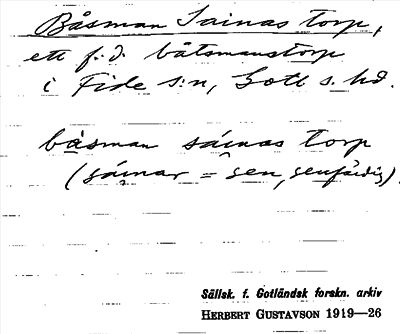 Båsman Sainas torp,
ett f.d. båtsmanstorp
i Fide s:n, Gotl s. hd.
båsman sáinas torp
(sáinar = sen, senfärdig).
Sällsk. f. Gotländsk forskn. arkiv
HERBERT GUSTAVSON 1919—26